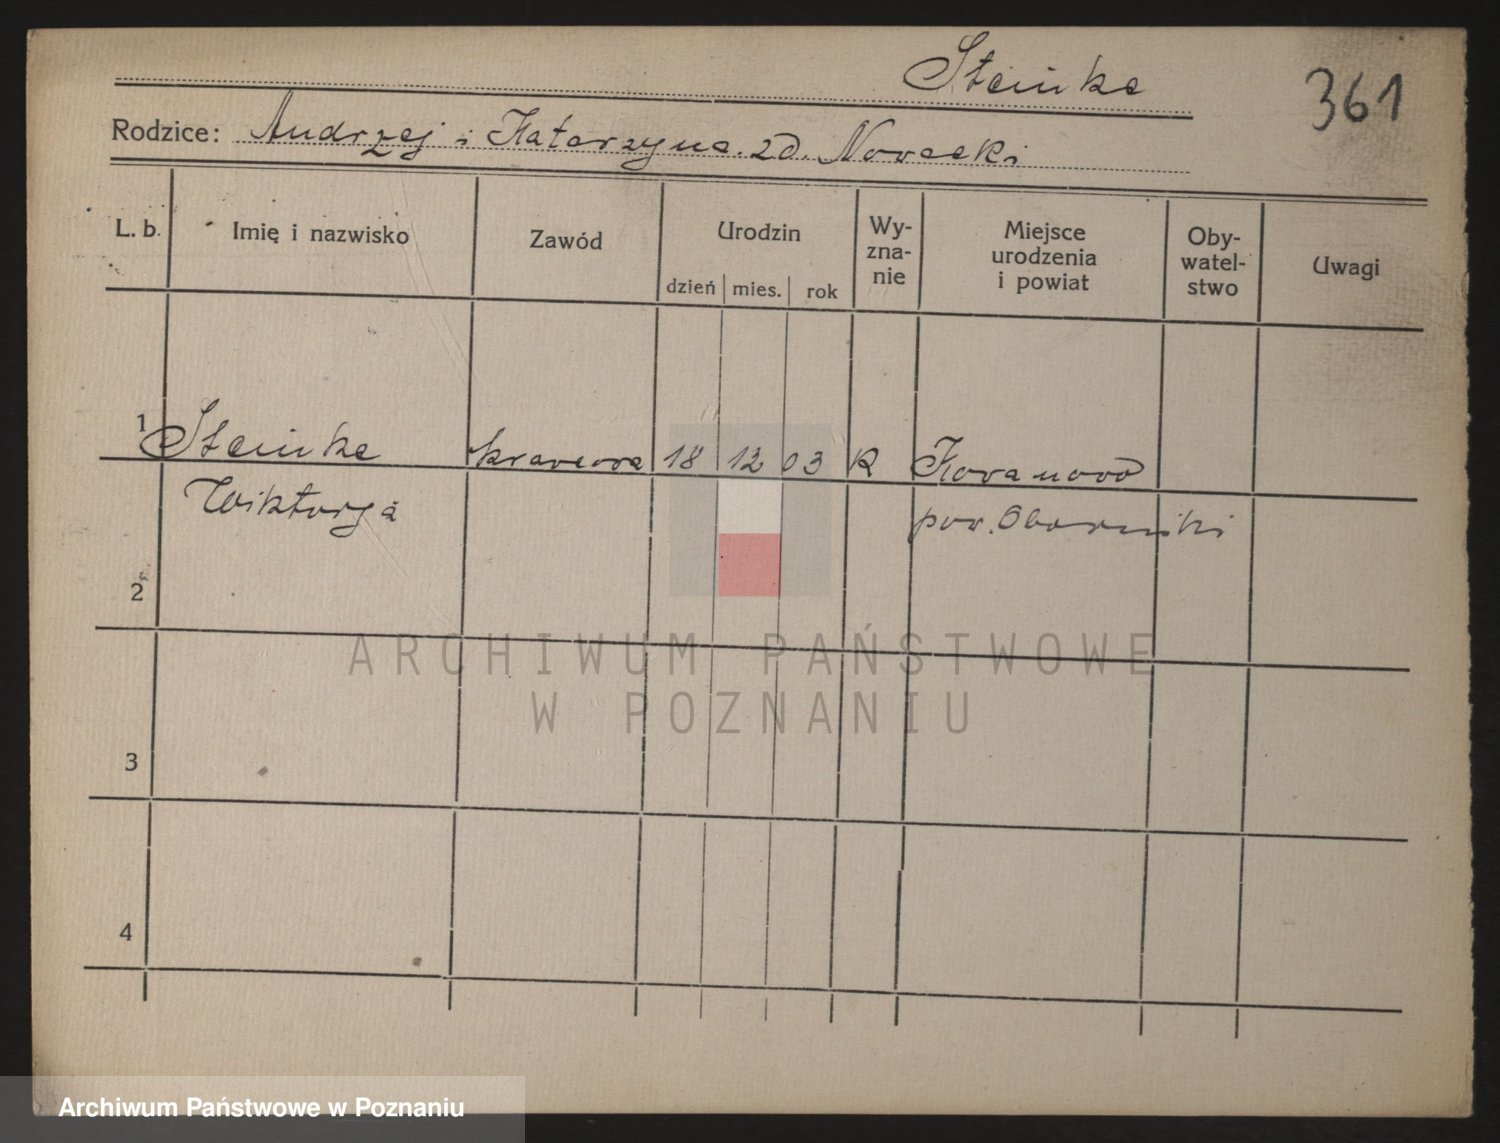 Steinke
361
Rodzice: Andrzej i Katarzyna zd. Novacki
L. b. Imię i nazwisko Zawód Urodzin Wy-zna-nie Miejsce urodzenia i powiat Oby-watel-stwo Uwagi
dzień mies. rok
1 Steinke krawcowa 18 12 03 k Kovanovo
Wiktorja pow. Obornicki
2
ARCHIWUM PAŃSTWOWE
W POZNANIU
3
4
Archiwum Państwowe w Poznaniu